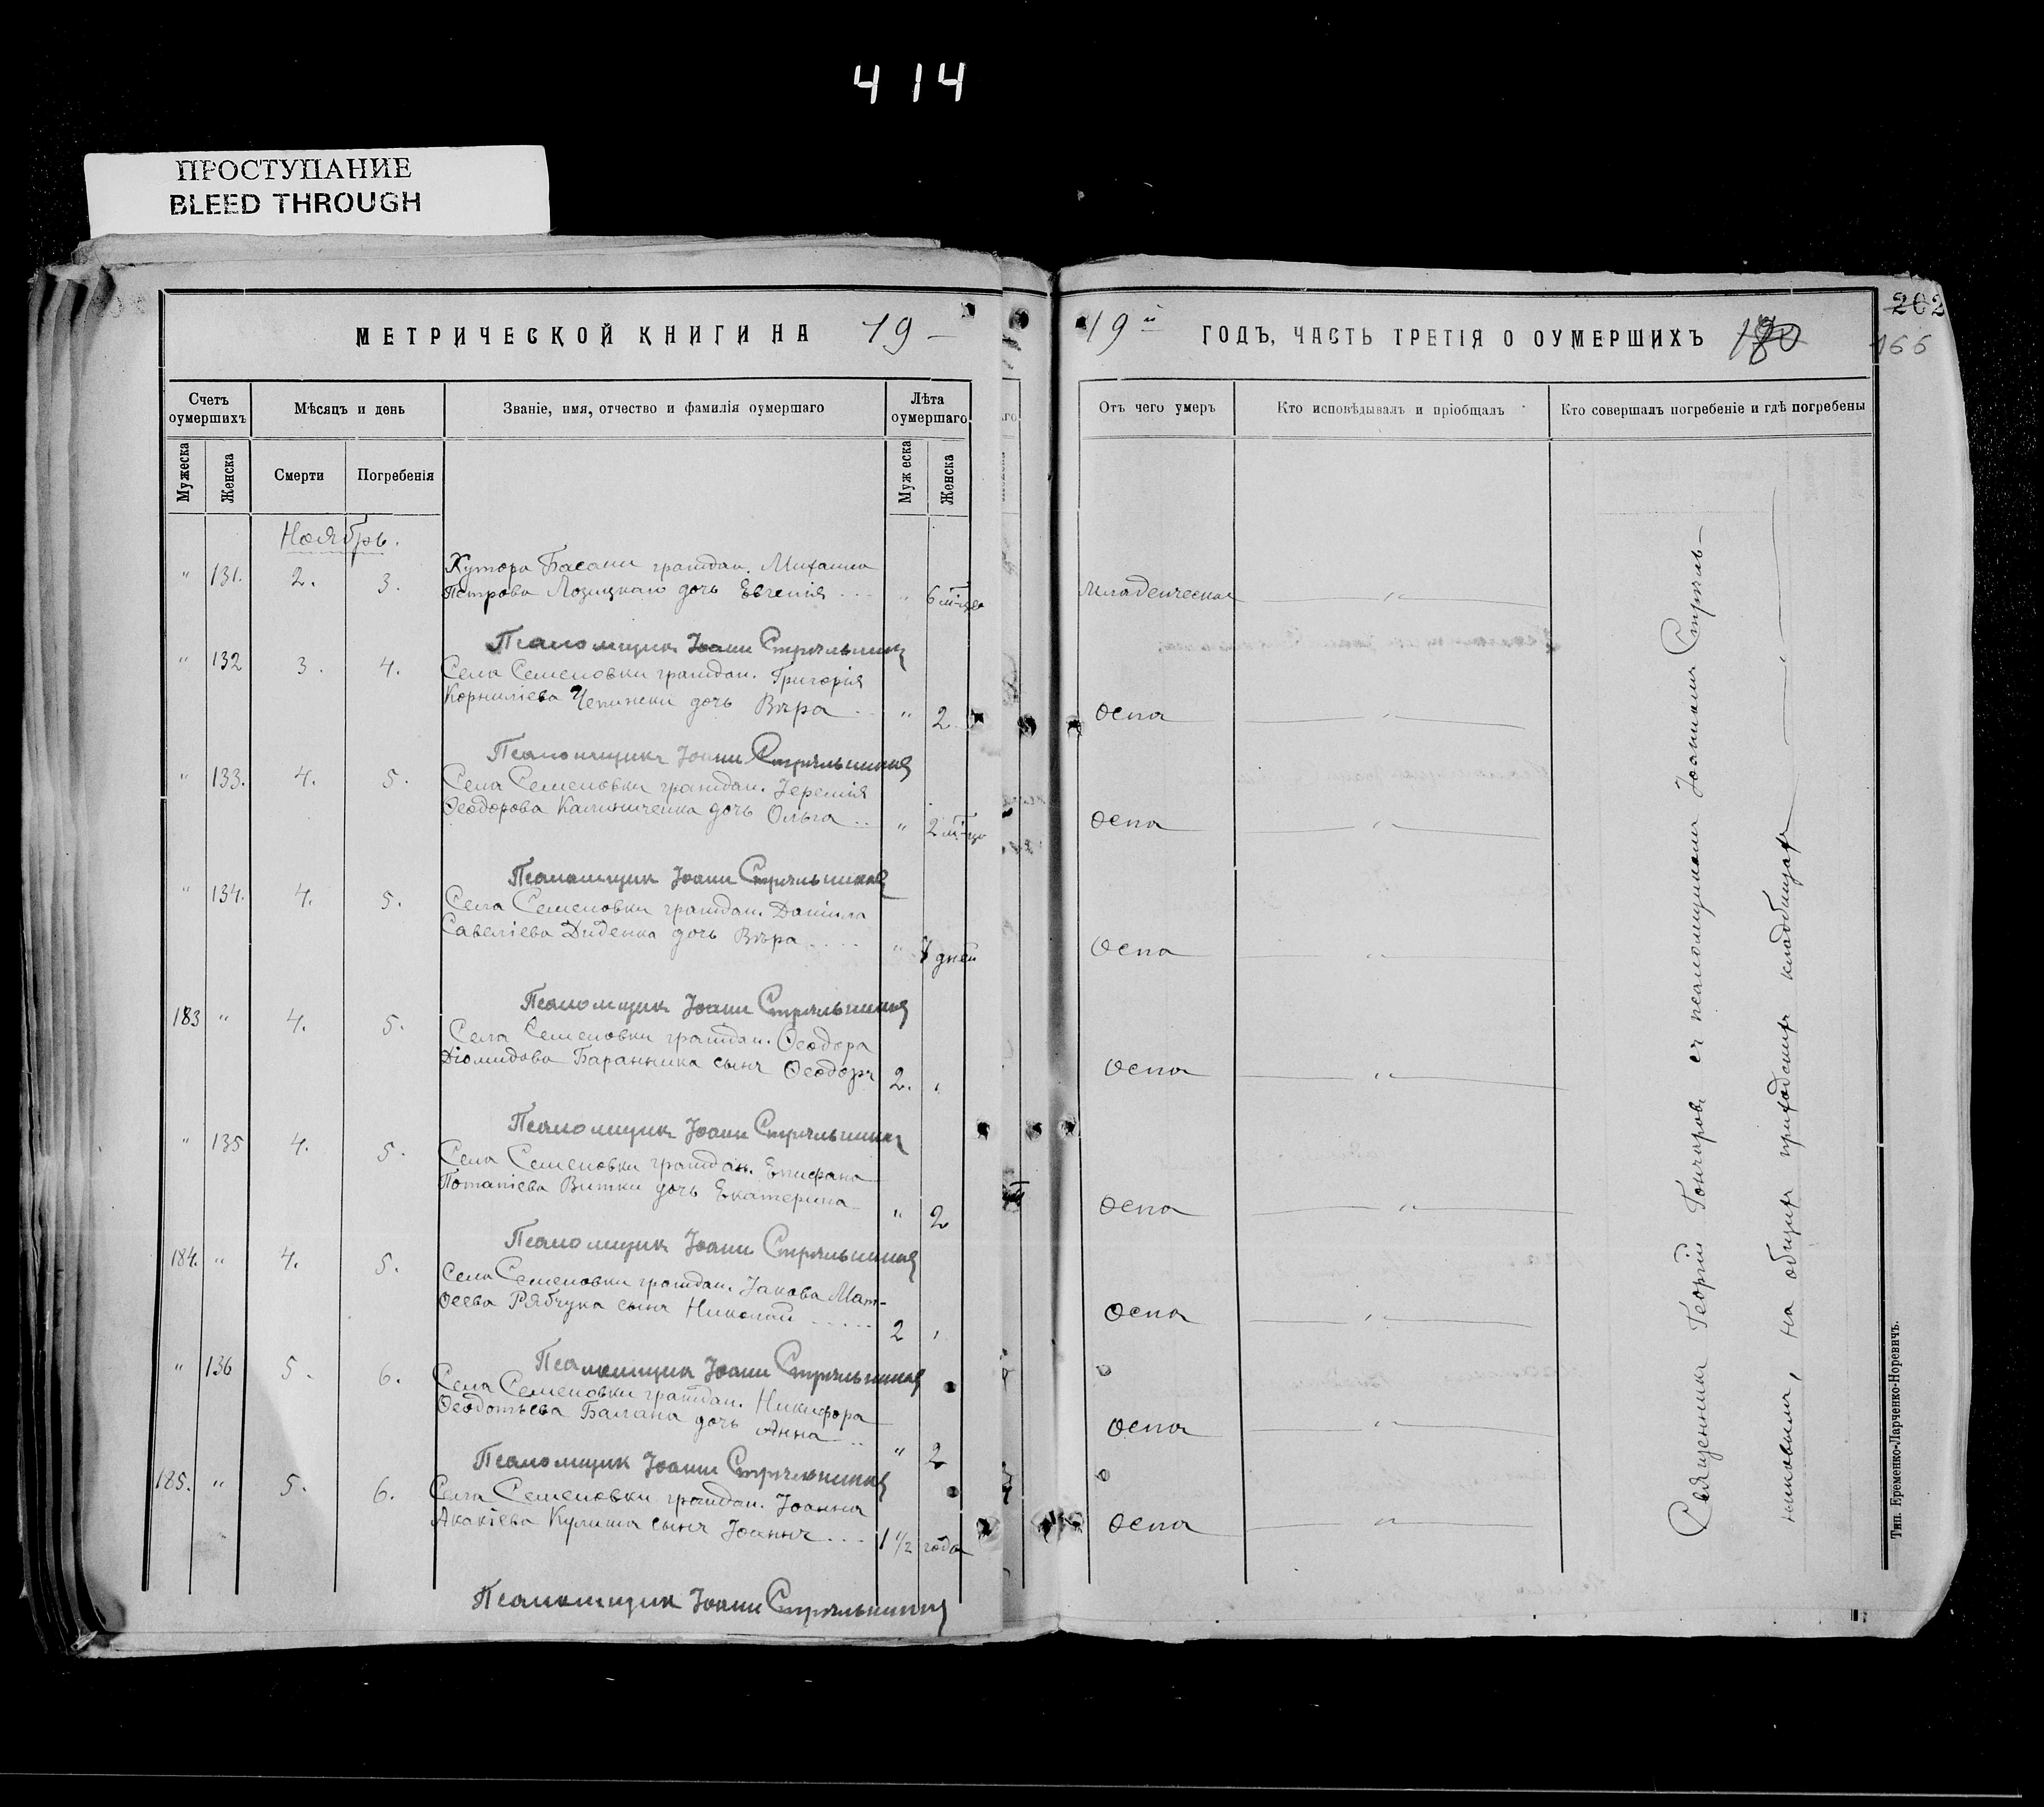 414
ПРОСТУПАНИЕ
BLEED THROUGH
МЕТРИЧЕСКОЙ КНИГИ НА 19 –
Счетъ оумершихъ
Мѣсяцъ и день
Званіе, имя, отчество и фамилія оумершаго
Лѣта оумершаго
Мужеска
Женска
Смерти
Погребенія
Муж еска
Женска
Ноябрь.
" 131. 2. 3. Хутора Басани граждан. Михаила
Петрова Лозицкаго дочь Евгенія . . . " 6 м-цев
Псаломщик Іоанн Стрѣльников
" 132 3. 4. Села Семеновки граждан. Григорія
Корниліева Чепински дочь Вѣра . . " 2
Псаломщикъ Іоанн Стрѣльников
" 133. 4. 5. Села Семеновки граждан. Іеремія
Ѳеодорова Калиниченка дочь Ольга . . " 2 м-ца
Псаломщик Іоанн Стрѣльников
" 134. 4. 5. Села Семеновки граждан. Даніила
Савеліева Диденка дочь Вѣра . . . . . " 8 дней
Псаломщик Іоанн Стрѣльников
183 " 4. 5. Села Семеновки граждан. Ѳеодора
Діомидова Баранника сынъ Ѳеодоръ 2. "
Псаломщик Іоанн Стрѣльников
" 135 4. 5. Села Семеновки граждан. Епифана
Потапіева Витки дочь Екатерина " 2
Псаломщик Іоанн Стрѣльников
184. " 4. 5. Села Семеновки граждан. Іакова Мат-
ѳеева Рябчука сынъ Николай . . . . . . 2 "
Псаломщик Іоанн Стрѣльников
" 136 5. 6. Села Семеновки граждан. Никифора
Ѳеодотьева Балана дочь Анна . . " 2
Псаломщик Іоанн Стрѣльников
185. " 5. 6. Села Семеновки граждан. Іоанна
Акакіева Кулиша сынъ Іоаннъ . . . 1 1/2 года
Псаломщик Іоанн Стрѣльников
19 й ГОДЪ, ЧАСТЬ ТРЕТІЯ О ОУМЕРШИХЪ
202
166
Отъ чего умеръ
Кто исповѣдывалъ и пріобщалъ
Кто совершалъ погребеніе и гдѣ погребены
Младенческая "
Оспа "
Оспа "
Оспа "
Оспа "
Оспа "
Оспа "
Оспа "
Оспа "
Священник Георгій Гончаров съ псаломщиком Іоанном Стрѣль-
никовым, на общем приходском кладбищѣ
Тип. Еременко-Ларченко-Норевичъ.